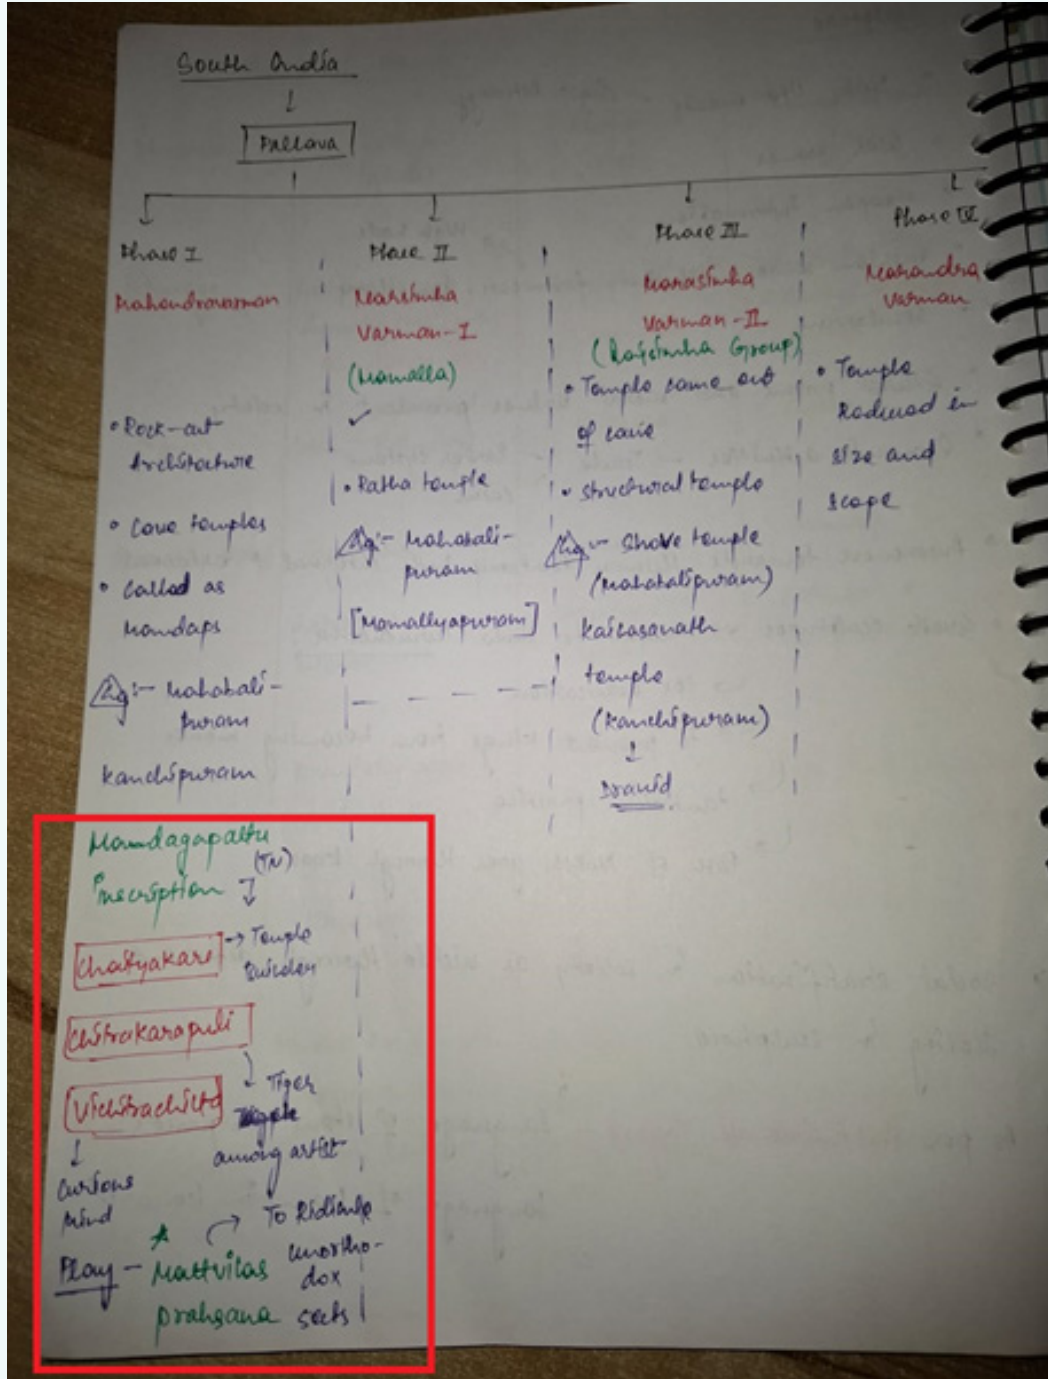 South India
↓
Pallava
Phase I
Mahendravarman
• Rock-cut
Architecture
• Cave temples
• Called as
Mandaps
Eg:- Mahabali-
puram
Kanchipuram
Mandagapattu
(TN)
inscription
Chaityakari → Temple
Builder
Chitrakarapuli
↓ Tiger
among artist
Vichitrachitta
↓
Curious
Mind
Play - Mattvilas
prahsana
→ To Ridicule
unortho-
dox
sects
Phase II
Narsimha
Varman-I
(Mamalla)
✓
• Ratha temple
Eg:- Mahabali-
puram
[Mamallyapuram]
Phase III
Narasimha
Varman-II
(Rajsimha Group)
• Temple came out
of cave
• Structural temple
Eg:- Shore temple
(Mahabalipuram)
Kailasanath
temple
(Kanchipuram)
↓
Dravid
Phase IV
Nandra
Varman
• Temple
Reduced in
size and
scope